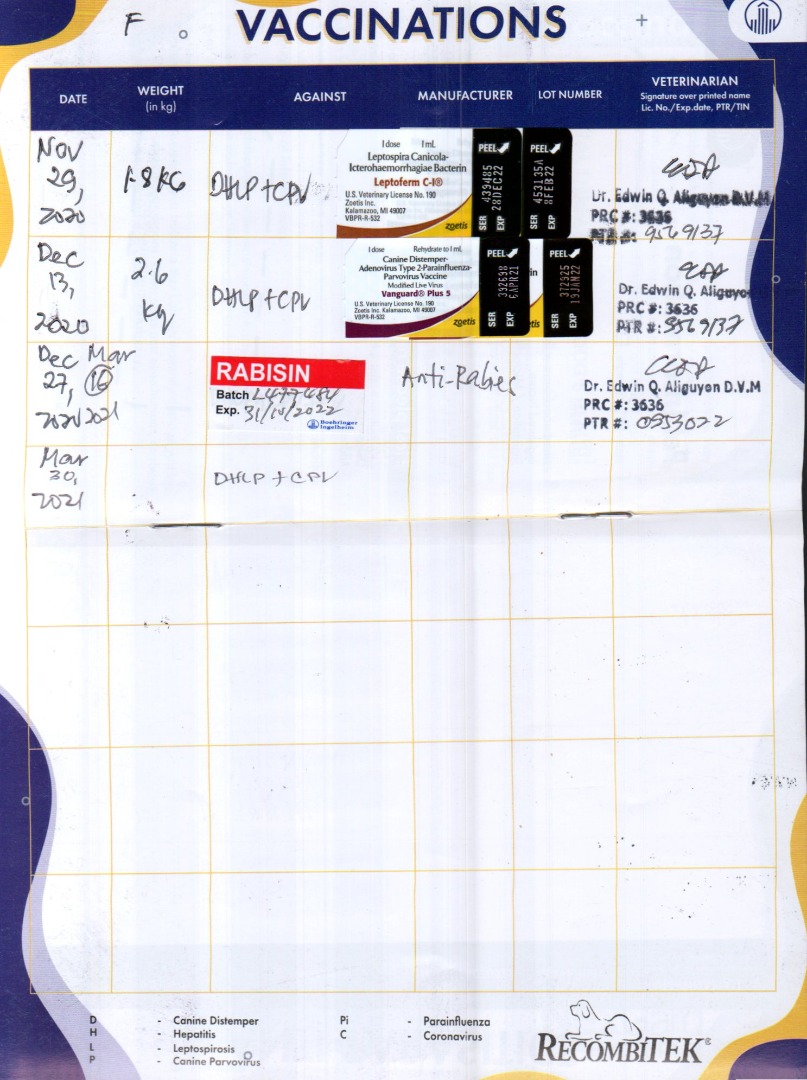 F
VACCINATIONS
DATE
WEIGHT
(in kg)
AGAINST
MANUFACTURER
LOT NUMBER
VETERINARIAN
Signature over printed name
Lic. No./Exp.date, PTR/TIN
Nov
29,
2020
1.8 KG
DHLP + CPV
1 dose 1 mL
Leptospira Canicola-
Icterohaemorrhagiae Bacterin
Leptoferm C-I®
U.S. Veterinary License No. 190
Zoetis Inc.
Kalamazoo, MI 49007
VBPR-R-532
zoetis
PEEL
SER 439485
EXP 28DEC22
PEEL
SER 453135A
EXP 8FEB22
Dr. Edwin Q. Aliguyon D.V.M
PRC #: 3636
PTR #: 9569137
Dec
13,
2020
2.6
Kg
DHLP + CPV
1 dose Rehydrate to 1 mL
Canine Distemper-
Adenovirus Type 2-Parainfluenza-
Parvovirus Vaccine
Modified Live Virus
Vanguard® Plus 5
U.S. Veterinary License No. 190
Zoetis Inc. Kalamazoo, MI 49007
VBPR-R-532
zoetis
PEEL
SER 392698
EXP 6APR21
PEEL
SER 372925
EXP 19JAN22
Dr. Edwin Q. Aliguyo
PRC #: 3636
PTR #: 9569137
Dec Mar
27, 16
2020 2021
RABISIN
Batch L477484
Exp. 31/10/2022
Boehringer
Ingelheim
Anti-Rabies
Dr. Edwin Q. Aliguyon D.V.M
PRC #: 3636
PTR #: 0553022
Mar
30,
2021
DHLP + CPV
D - Canine Distemper
H - Hepatitis
L - Leptospirosis
P - Canine Parvovirus
Pi - Parainfluenza
C - Coronavirus
RECOMBITEK®